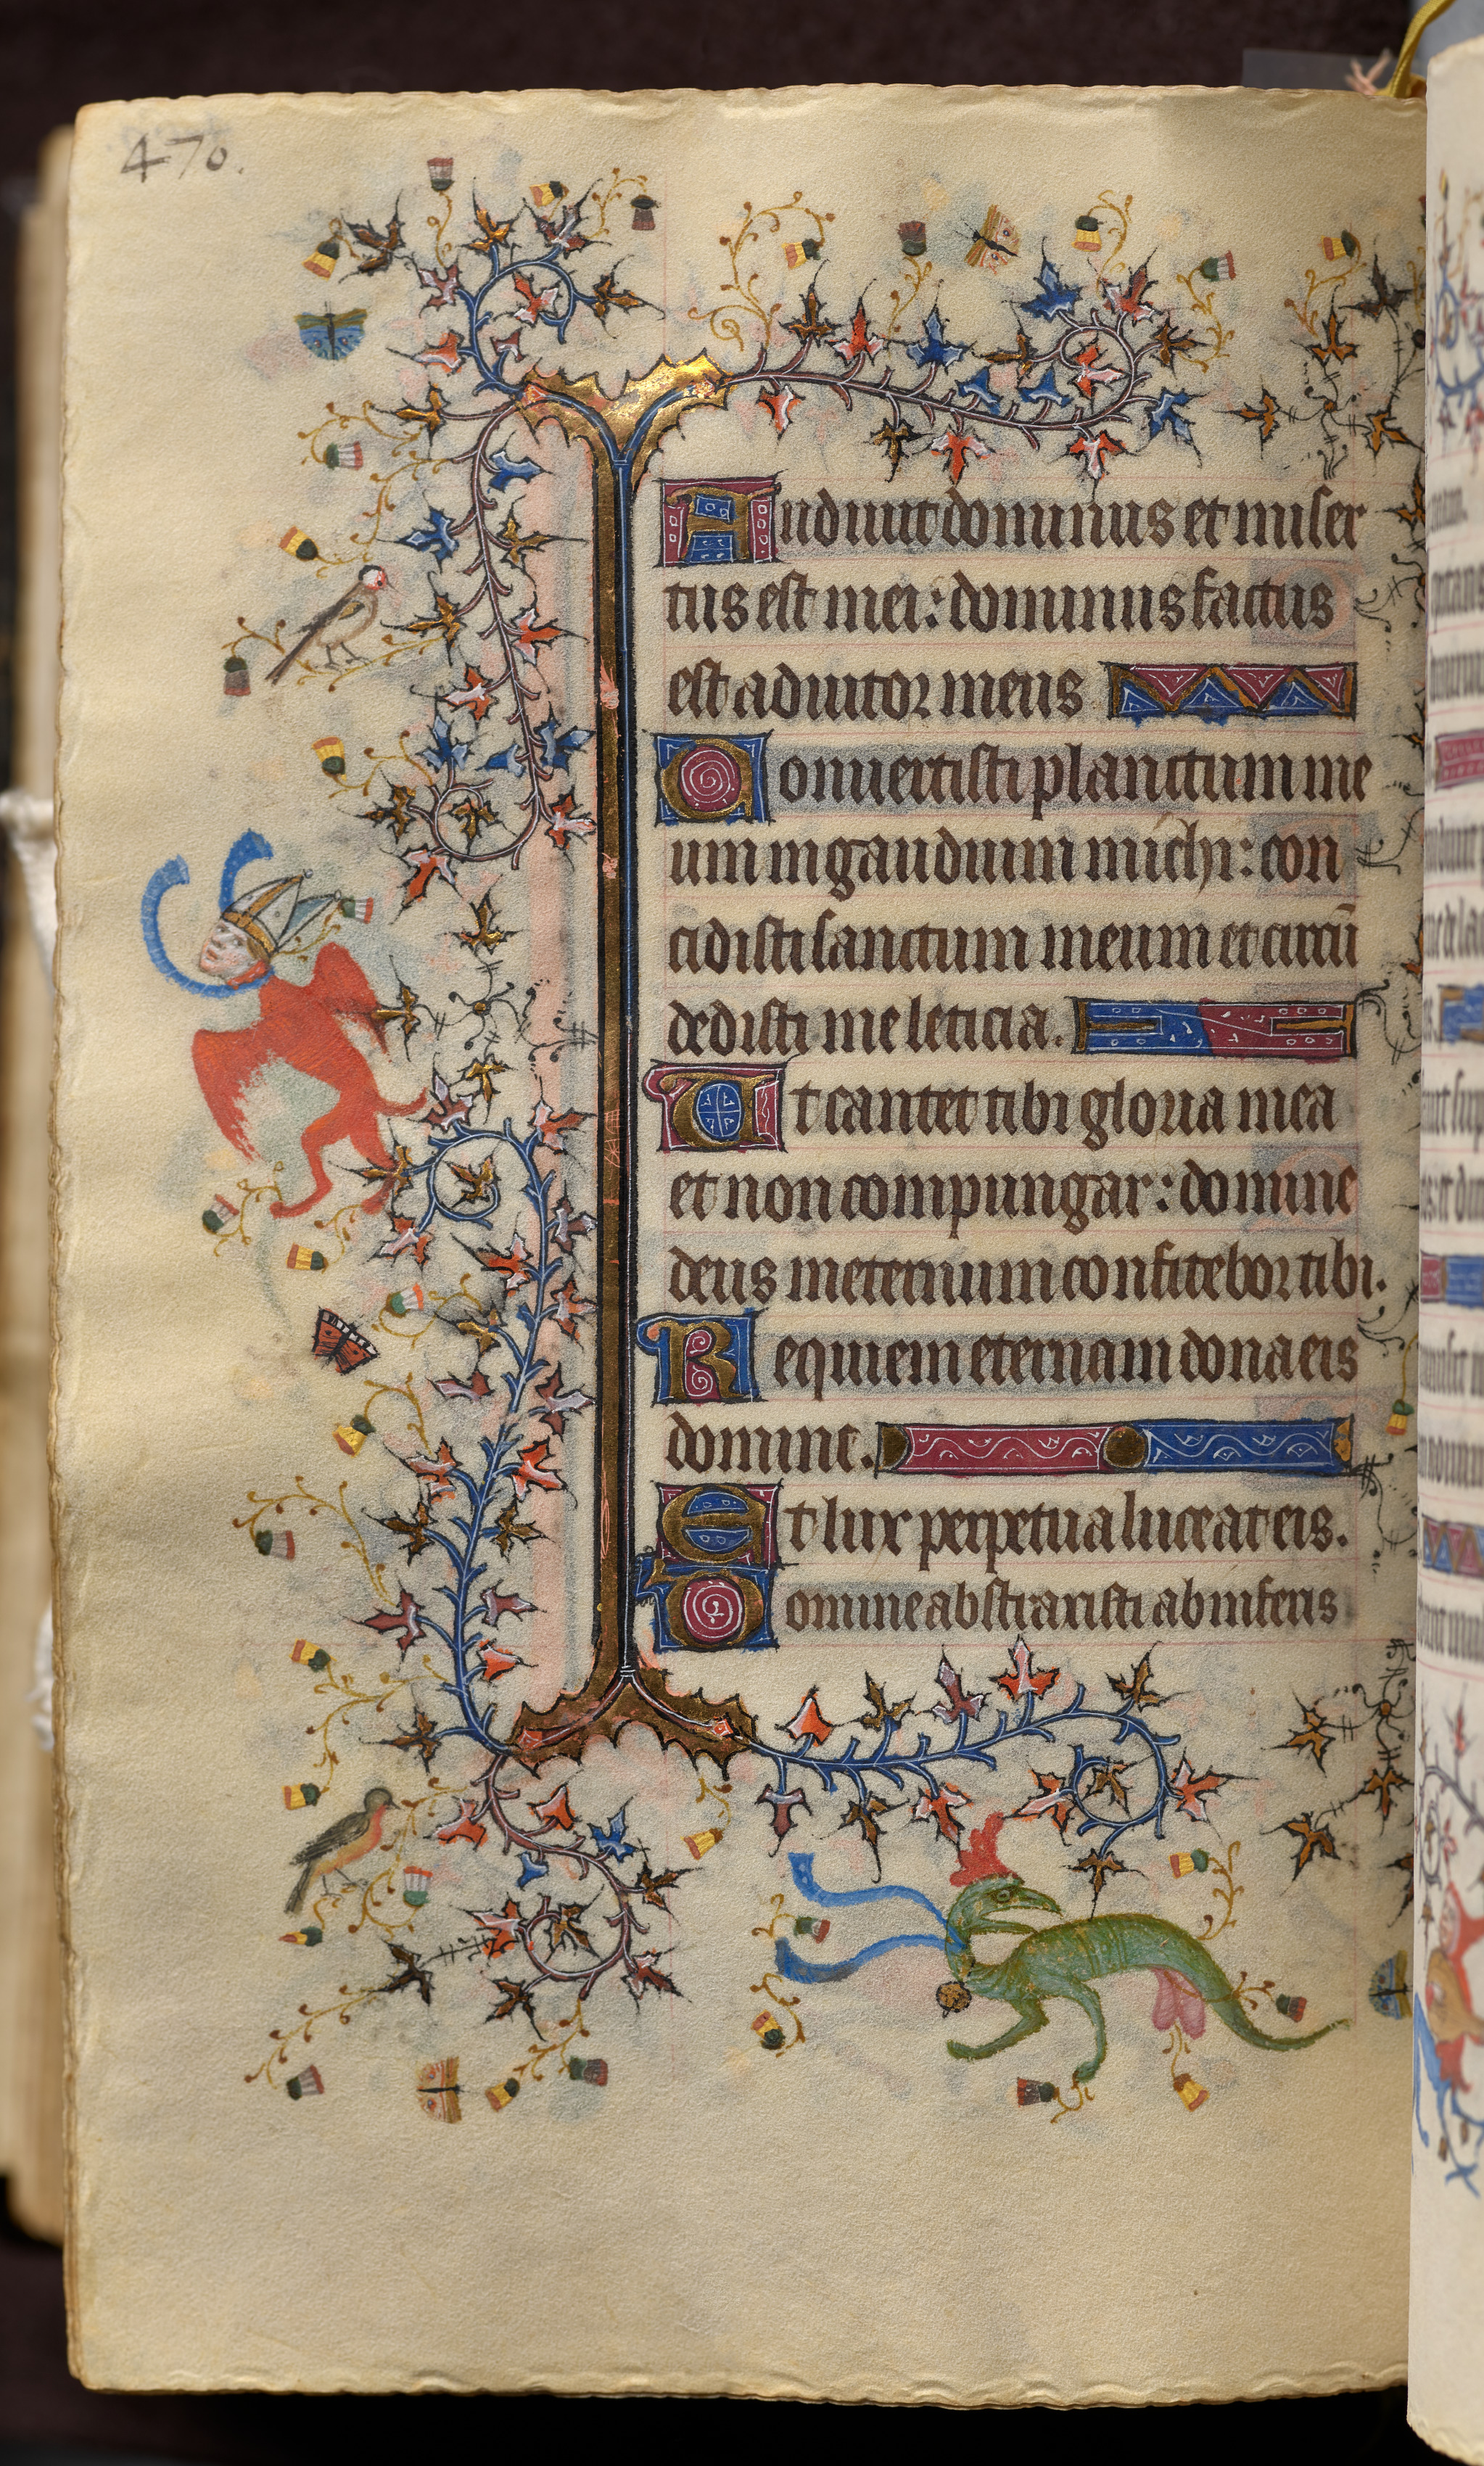 470.
Audiuit dominus et miser
tus est mei: dominus factus
est adiutor meus
Conuertisti planctum me
um in gaudium michi: con
cidisti sanctum meum et circū
dedisti me leticia.
Ut cantet tibi gloria mea
et non compungar: domine
deus meternum confitebor tibi.
Requiem eternam dona eis
domine.
Et lux perpetua luceat eis.
Domine abstraxisti ab inferis